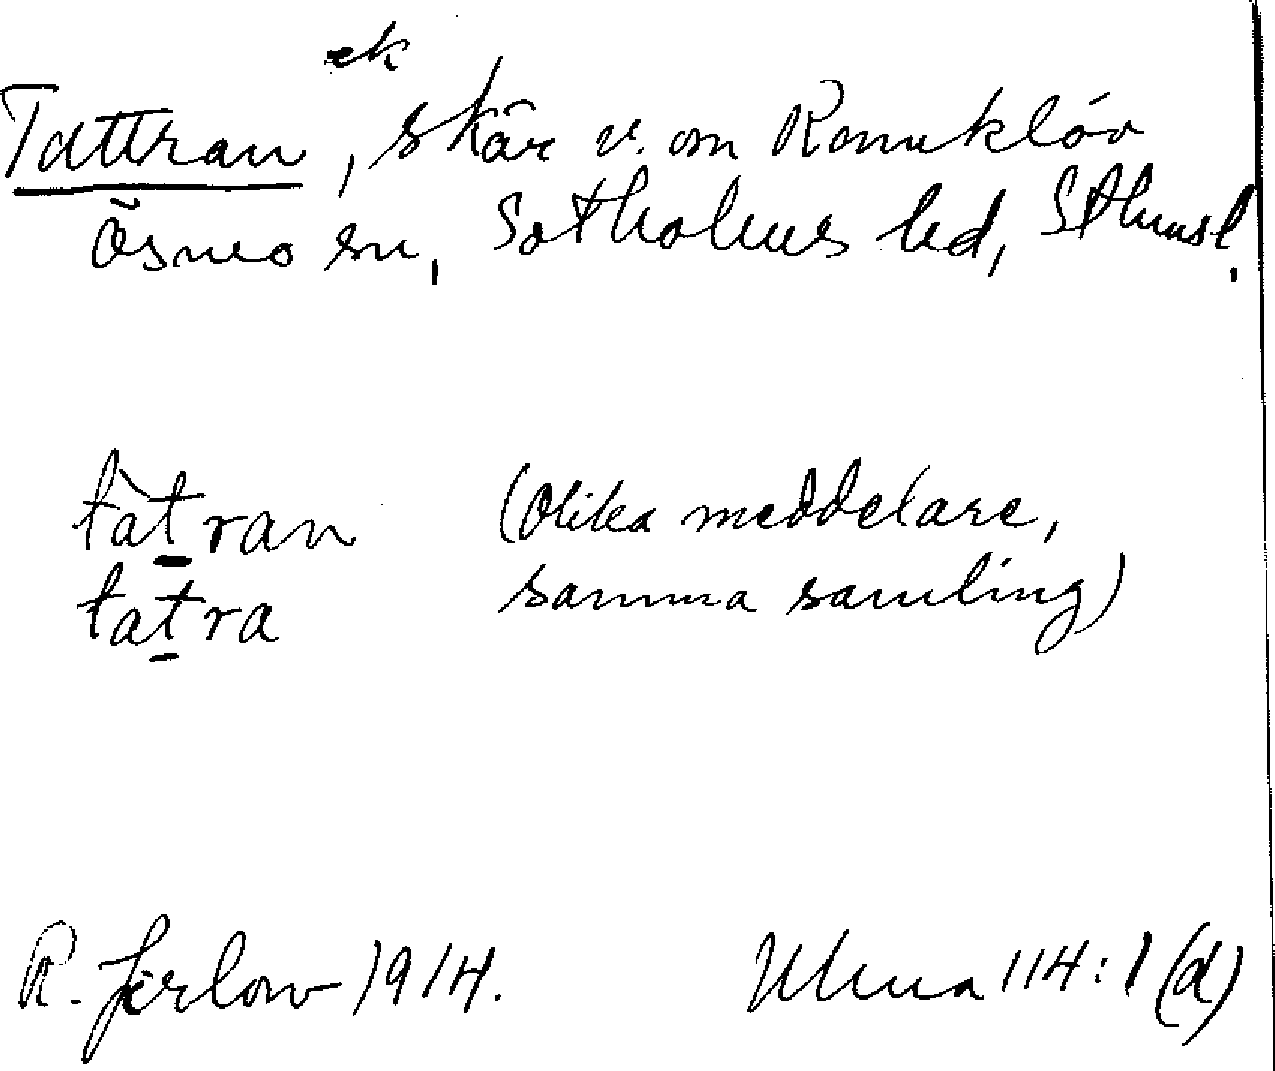 ek
Tattran, skär v. om Ramsklöv
Ösmo sn, Sotholms hd, Sthmsl.
tàtran (Olika meddelare,
tatra samma samling)
R. Jerlow 1914. Ulma 114:1 (d)